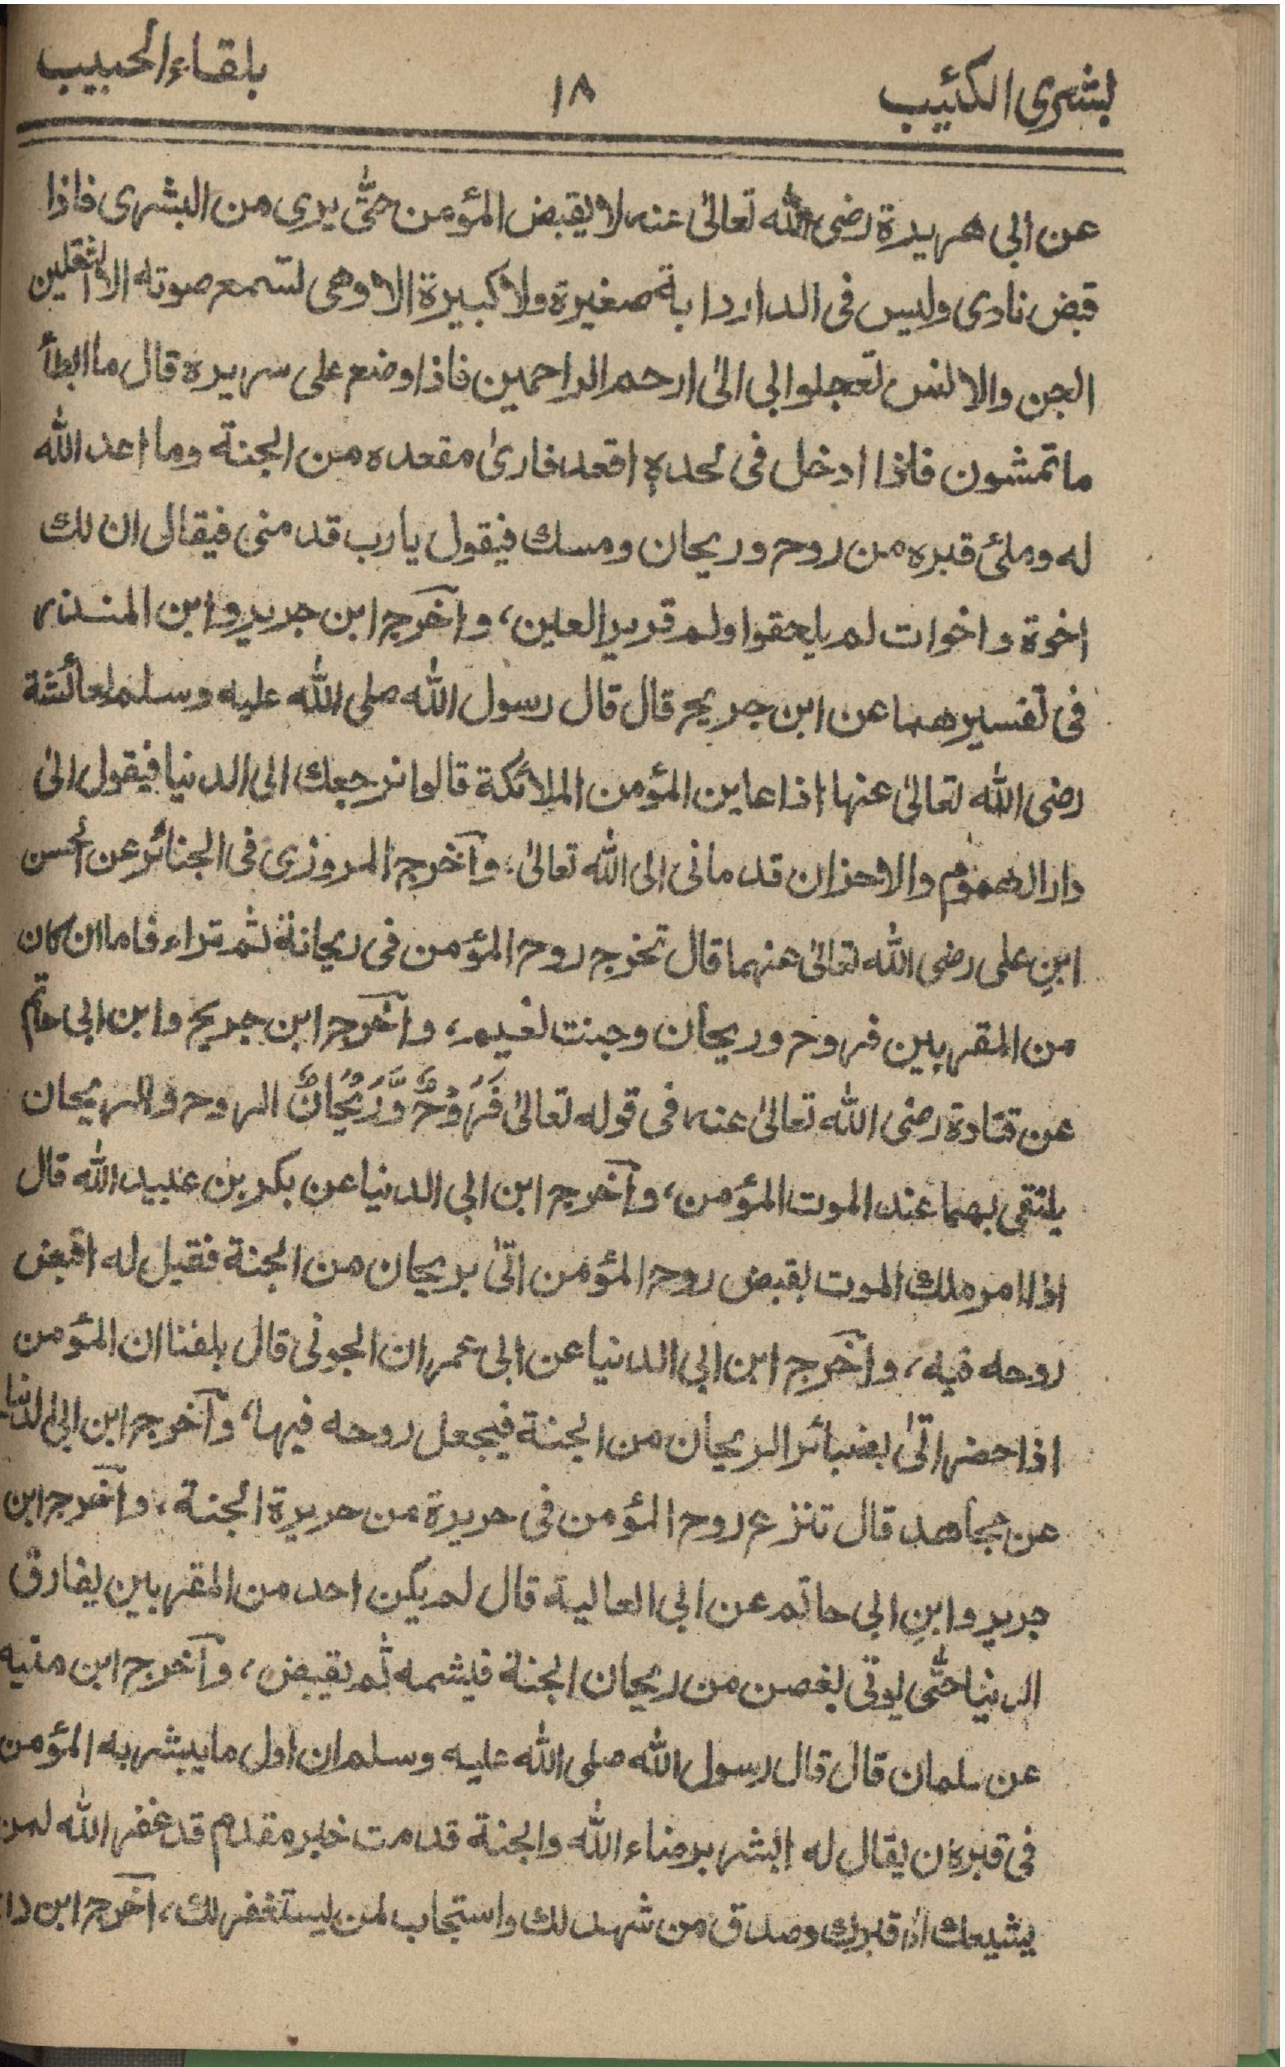 بشرى الكئيب ١٨ بلقاء الحبيب
عن ابى هريرة رضى الله تعالىٰ عنه لا يقبض المؤمن حتّٰى يرى من البشرى فاذا
قبض نادى وليس فى الدار دابة صغيرة ولا كبيرة الا وهى لتسمع صوته الا الثقلين
الجن والانس تعجلوا بى الىٰ ارحم الراحمين فاذا وضع على سريره قال ما ابطأ
ما تمشون فاذا ادخل فى لحدهٖ اقعد فارىٰ مقعده من الجنة وما اعد الله
له وملئ قبره من روح وريحان ومسك فيقول يارب قد منى فيقال ان لك
اخوة واخوات لم يلحقوا ولم قرير العين، وآخرج ابن جرير وابن المنذر
فى تفسيرهما عن ابن جريج قال قال رسول الله صلى الله عليه وسلم لعائشة
رضى الله تعالىٰ عنها اذا عاين المؤمن الملائكة قالوا نرجعك الى الدنيا فيقول الىٰ
دار الهموم والاحزان قد مانى الى الله تعالىٰ، وآخرج المروزى فى الجنائز عن الحسن
ابنِ على رضى الله تعالىٰ عنهما قال تخرج روح المؤمن فى ريحانة ثم تراء فاما ان كان
من المقربين فروح وريحان وجنت نعيم، وآخرج ابن جريج وابن ابى حاتم
عن قتادة رضى الله تعالىٰ عنه فى قوله تعالىٰ فَرَوْحٌ وَّرَيْحَانٌ الروح والريحان
يلتقى بهما عند الموت المؤمن، وآخرج ابن ابى الدنيا عن بكر بن عبيد الله قال
اذا امر ملك الموت بقبض روح المؤمن اتىٰ بريحان من الجنة فقيل له اقبض
روحه فيه، وآخرج ابن ابى الدنيا عن ابى عمران الجونى قال بلغنا ان المؤمن
اذا حضر اتىٰ بضبائر الريحان من الجنة فيجعل روحه فيها، وآخرج ابن ابى الدنيا
عن مجاهد قال تنزع روح المؤمن فى حريرة من حريرة الجنة، وآخرج ابن
جرير وابنِ ابى حاتم عن ابى العالية قال لم يكن احد من المقربين يفارق
الدنيا حتّٰى يوتى بغصن من ريحان الجنة فيشمه ثم يقبض، وآخرج ابن منيه
عن سلمان قال قال رسول الله صلى الله عليه وسلم ان اول ما يبشر به المؤمن
فى قبره ن يقال له ابشر برضاء الله والجنة قدمت خير مقدم قد غفر الله لمن
يشيعك الىٰ قبرك وصدق من شهد لك واستجاب لمن يستغفر لك، آخرج ابن